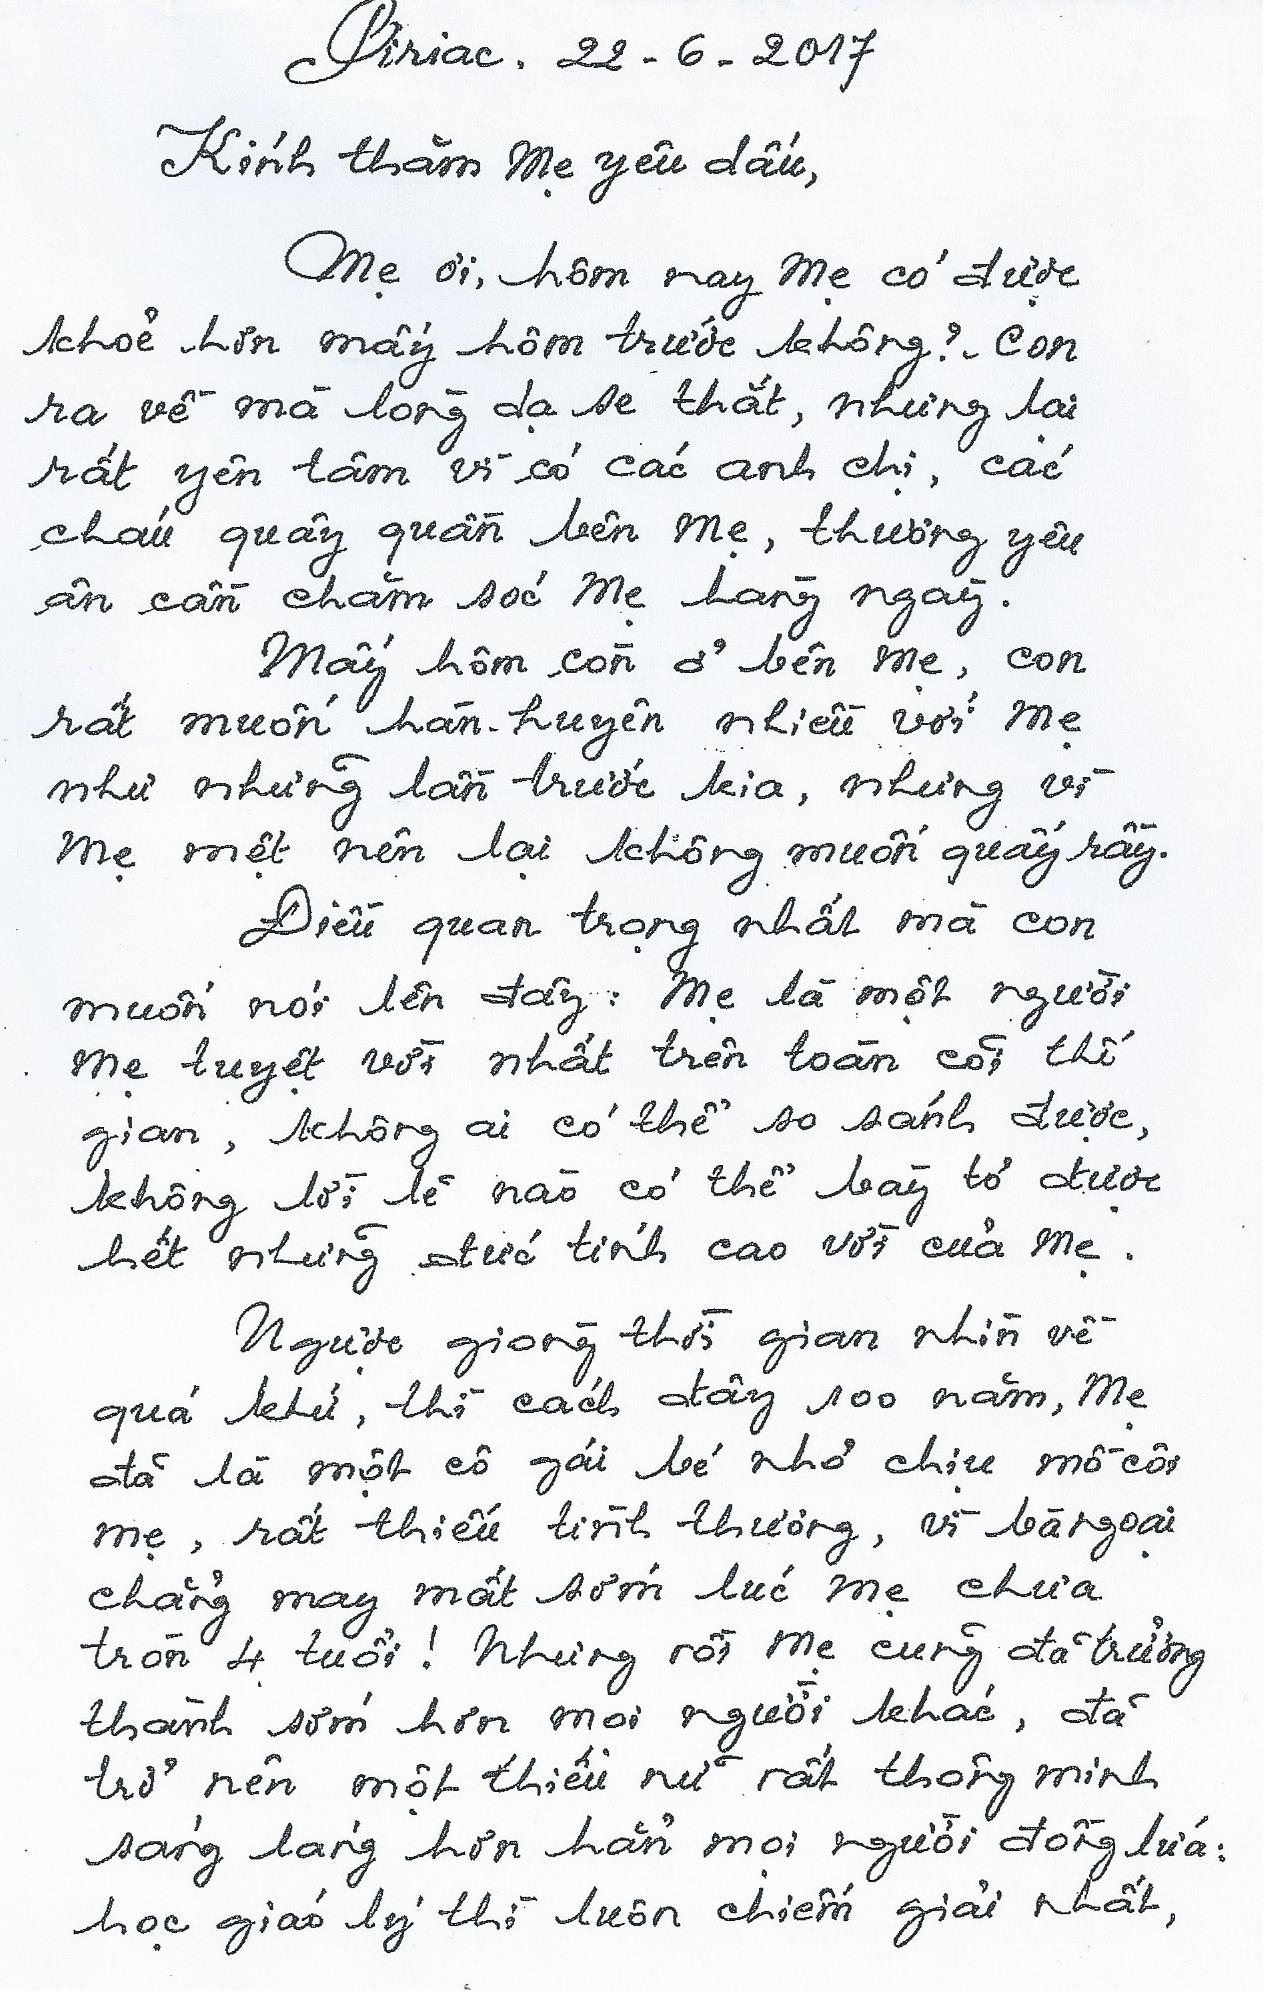 Piriac, 22-6-2017
Kính thăm Mẹ yêu dấu,
Mẹ ơi, hôm nay Mẹ có được
khoẻ hơn mấy hôm trước không? Con
ra về mà lòng dạ se thắt, nhưng lại
rất yên tâm vì có các anh chị, các
cháu quây quần bên Mẹ, thương yêu
ân cần chăm sóc Mẹ hàng ngày.
Mấy hôm còn ở bên Mẹ, con
rất muốn hàn-huyên nhiều với Mẹ
như những lần trước kia, nhưng vì
Mẹ mệt nên lại không muốn quấy rầy.
Điều quan trọng nhất mà con
muốn nói lên đây: Mẹ là một người
Mẹ tuyệt vời nhất trên toàn cõi thế
gian, không ai có thể so sánh được,
không lời lẽ nào có thể bày tỏ được
hết những đức tính cao vời của Mẹ.
Ngược giòng thời gian nhìn về
quá khứ, thì cách đây 100 năm, Mẹ
đã là một cô gái bé nhỏ chịu mồ côi
mẹ, rất thiếu tình thương, vì bà ngoại
chẳng may mất sớm lúc Mẹ chưa
tròn 4 tuổi! Nhưng rồi Mẹ cũng đã trưởng
thành sớm hơn mọi người khác, đã
trở nên một thiếu nữ rất thông minh
sáng láng hơn hẳn mọi người đồng lứa:
học giáo lý thì luôn chiếm giải nhất,